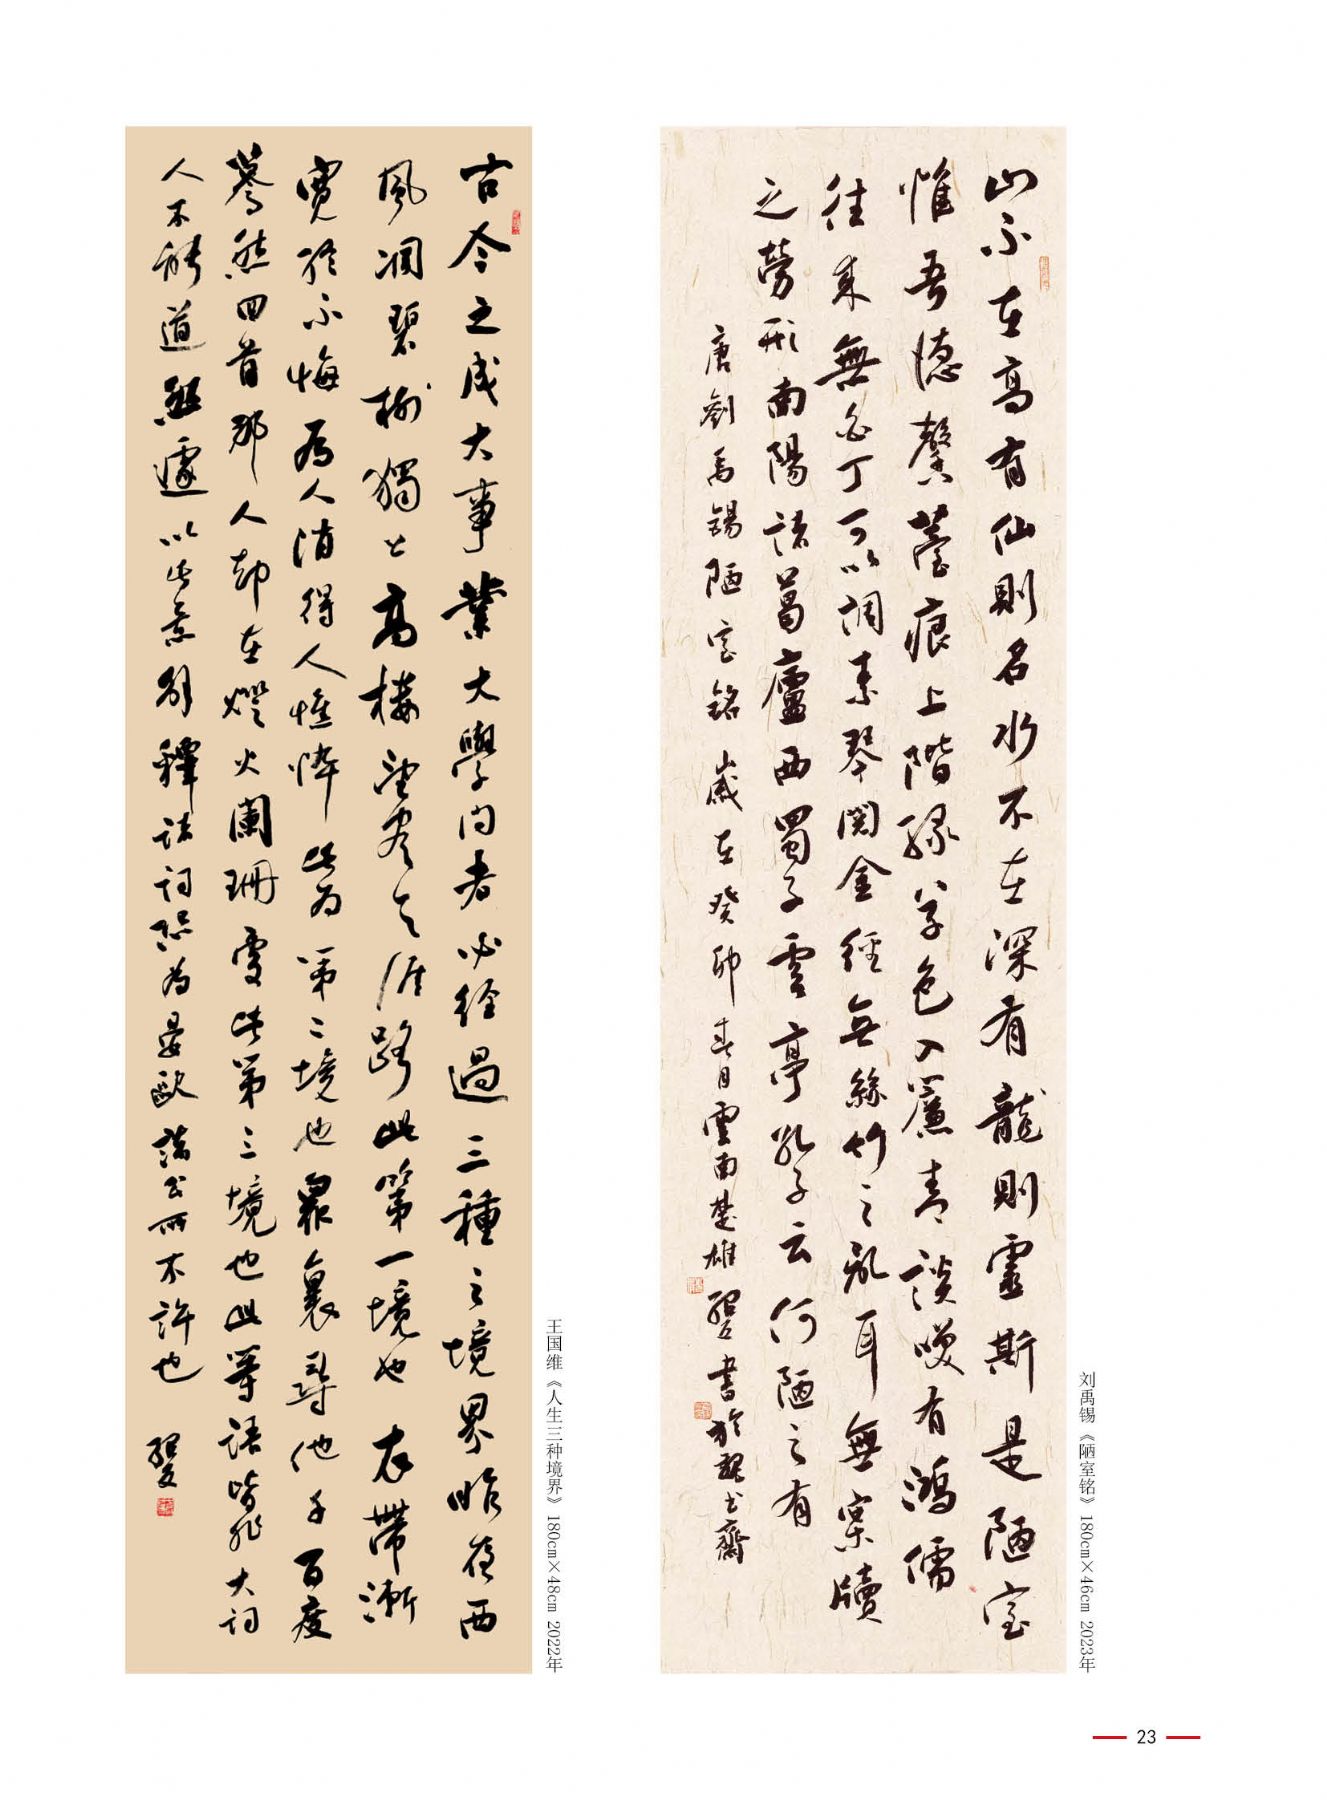 山不在高有仙則名水不在深有龍則靈斯是陋室
惟吾德馨薹痕上階緑草色入簾青談笑有鴻儒
往來無白丁可以調素琴閱金經無絲竹之亂耳無案牘
之勞形南陽諸葛廬西蜀子雲亭孔子云何陋之有
唐劉禹錫陋室銘 歲在癸卯春月雲南楚雄 書於書齋
刘禹锡《陋室铭》 180cm×46cm 2023年
古今之成大事業大學問者必經過三種之境界昨夜西
風凋碧樹獨上高樓望盡天涯路此第一境也衣帶漸
寬終不悔為人消得人憔悴此為第二境也眾裏尋他千百度
驀然回首那人却在燈火闌珊處此第三境也此等語皆非大詞
人不能道然遽以此意解釋諸詞恐為晏歐諸公所不許也
王国维《人生三种境界》 180cm×48cm 2022年
23